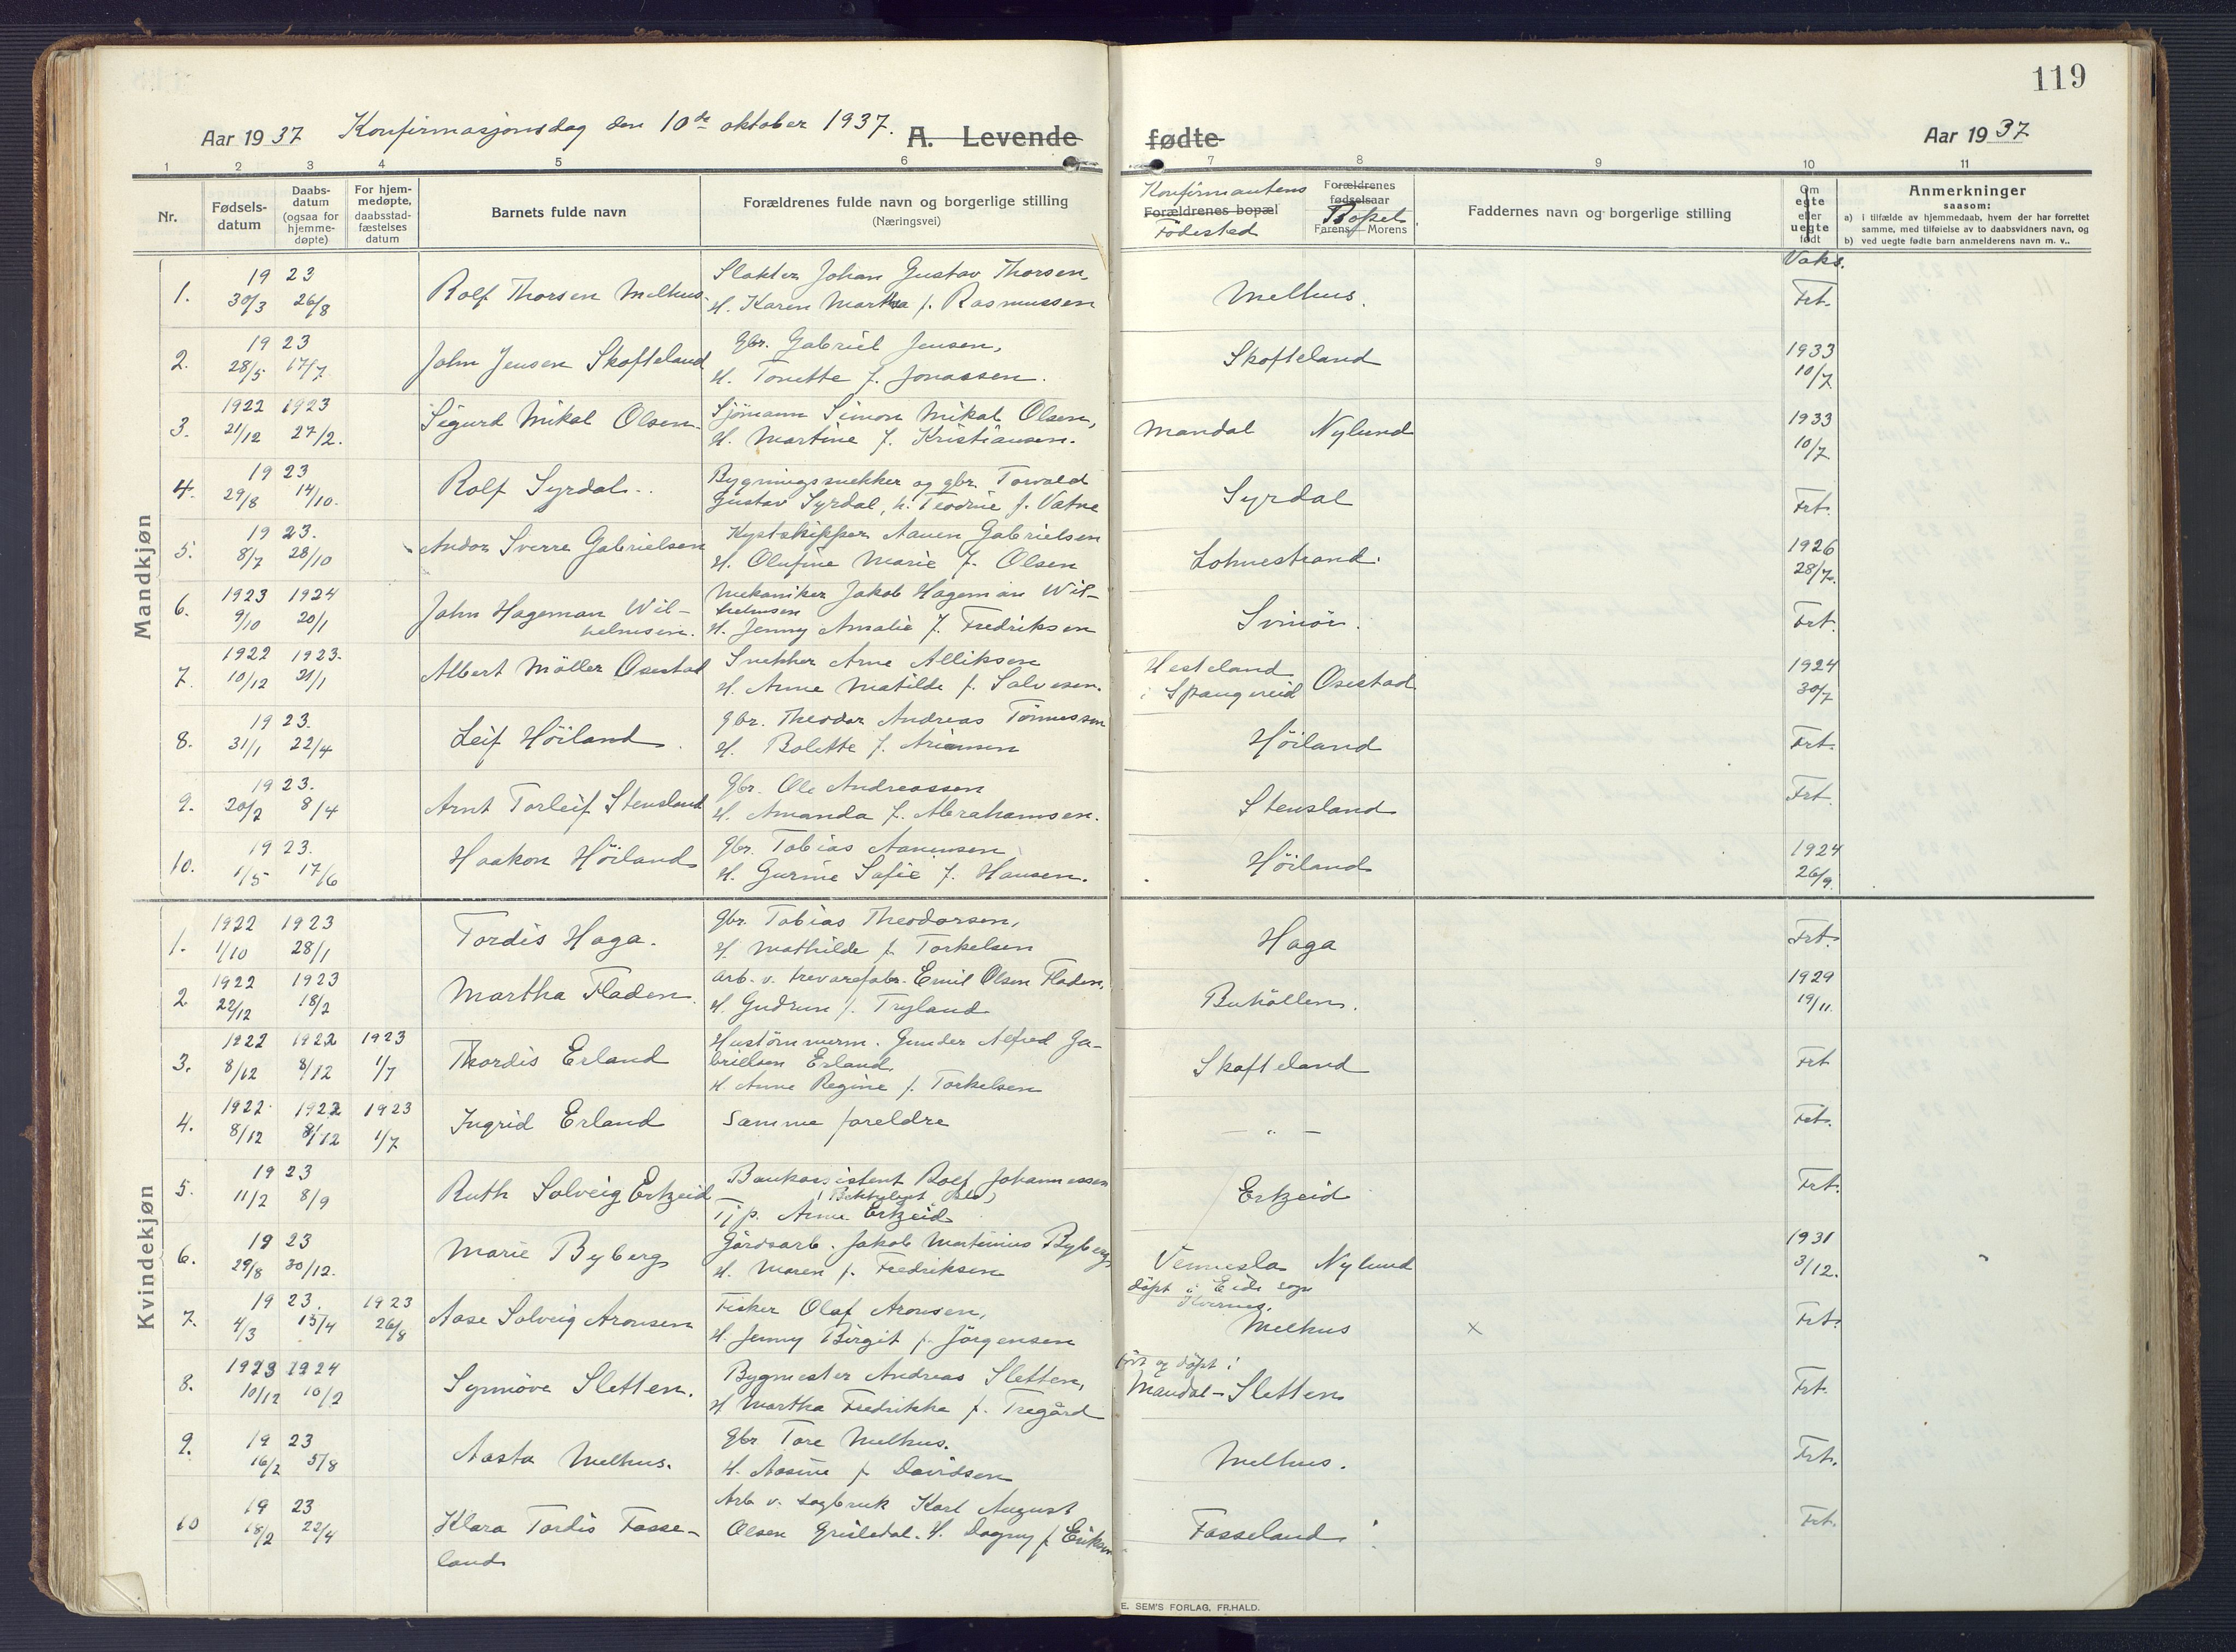 119
Aar 1937 Konfirmasjonsdag den 10de oktober 1937. A. Levende
fødte Aar 1937
1 2 3 4 5 6 7 8 9 10 11
Nr.
Fødsels-
datum
Daabs-
datum
(ogsaa for
hjemme-
døpte)
For hjem-
medøpte,
daabsstad-
fæstelses
datum
Barnets fulde navn
Forældrenes fulde navn og borgerlige stilling
(Næringsvei)
Konfirmantens
Forældrenes bopæl
Födested
Forældrenes
fødselsaar
Bopel
Farens Morens
Faddernes navn og borgerlige stilling
Om
egte
eller
uegte
født
Anmerkninger
saasom:
a) i tilfælde av hjemmedaab, hvem der har forrettet
samme, med tilføielse av to daabsvidners navn, og
b) ved uegte fødte barn anmelderens navn m. v..
Mandkjøn
Vaks.
1. 19 23 30/3 26/8 Rolf Thorsen Melhus. Slakter Johan Gustav Thorsen,
H. Karen Martha f. Rasmussen Melhus. Frt.
2. 19 23 28/5 17/7 John Jensen Skofteland gbr. Gabriel Jensen,
H. Tonette f. Jonassen. Skofteland 1933 10/7
3. 1922 1923 21/12 27/2. Sigurd Mikal Olsen Sjömann Simon Mikal Olsen,
H. Martine f. Kristiansen. Mandal Nylund 1933 10/7
4. 19 23 29/8 14/10. Rolf Syrdal.. Bygningssnekker og gbr. Torvald
Gustav Syrdal, h. Teodrine f. Vatne Syrdal Frt.
5. 19 23. 8/7 28/10 Andor Sverre Gabrielsen Kystskipper Aanen Gabrielsen
H. Olufine Marie f. Olsen Lohnestrand. 1926 28/7.
6. 1923 1924 9/10 20/1 John Hageman Wil-
helmsen. Mekaniker Jakob Hageman Wil-
helmsen
H. Jenny Amalie f. Fredriksen Svinör. Frt.
7. 1922 1923. 10/12 21/1 Albert Möller Osestad Snekker Arne Alliksen
H. Anne Matilde f. Salvesen. Hesteland
i Spangereid Osestad 1924 30/7
8. 19 23. 31/1 22/4 Leif Höiland. gbr. Theodor Andreas Tönnessen
H. Bolette f. Ariansen Höiland Frt.
9. 19 23. 20/2 8/4 Arnt Torleif Stensland gbr. Ole Andreassen
H. Amanda f. Abrahamsen. Stensland Frt.
10. 19 23. 1/5 17/6 Haakon Höiland gbr. Tobias Aanensen
H. Gurine Sofie f. Hansen. Höiland 1924 26/9.
Kvindekjøn
1. 1922 1923 1/10 28/1 Tordis Haga. gbr. Tobias Theodorsen,
H. Mathilde f. Torkelsen Haga Frt.
2 1922 1923 22/12 18/2 Martha Fladen. Arb. v. trevarefabr. Emil Olsen Fladen,
H. Gudrun f. Tryland Buhöllen. 1929 19/11.
3. 1922 1922 1923 8/12 8/12 1/7 Thordis Erland Hustömmerm. Gunder Alfred Ga-
brielsen Erland,
H. Anne Regine f. Torkelsen Skofteland Frt
4. 1922. 1922 1923 8/12 8/12 1/7 Ingrid Erland Samme foreldre — " — Frt.
5. 19 23 11/2 8/9 Ruth Solveig Erkeid Bankassistent Rolf Johannessen
Tjp. Anna Erkeid Erkeid Frt.
6. 19 23 29/8 30/12. Marie Byberg Gårdsarb. Jakob Martinius Byberg
H. Maren f. Fredriksen Vennesla Nylund 1931 3/12.
7. 19 23. 1923 4/3 15/4 26/8 Aase Solveig Aronsen Fisker Olaf Aronsen,
H. Jenny Birgit f. Jörgensen döpt i Eide sogn
Melhus × Frt.
8. 1923 1924 10/12 10/2 Synnöve Sletten. Bygmester Andreas Sletten,
H Martha Fredrikke f. Tregård Födt og döpt i
Mandal - Sletten Frt.
9. 19 23 16/2 5/8 Aasta Melhus. gbr. Tore Melhus.
H. Aasine f Davidsen Melhus. Frt.
10 19 23 18/2 22/4 Klara Tordis Fosse-
land Arb v. sagbruk Karl August
Olsen Griseledal. H. Dagny f Eriksen Fosseland. Frt.
E. SEM'S FORLAG, FR.HALD.